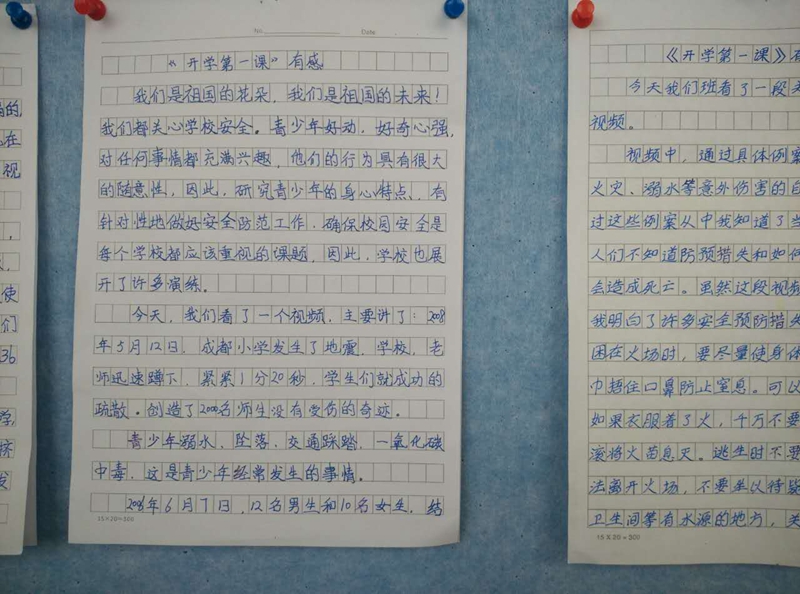 No.
Date
《开学第一课》有感
我们是祖国的花朵，我们是祖国的未来！
我们都关心学校安全。青少年好动，好奇心强，
对任何事情都充满兴趣，他们的行为具有很大
的随意性，因此，研究青少年的身心特点、有
针对性地做好安全防范工作，确保校园安全是
每个学校都应该重视的课题，因此，学校也展
开了许多演练。
今天，我们看了一个视频，主要讲了：2008
年5月12日，成都小学发生了地震，学校，老
师迅速蹲下，紧紧1分20秒，学生们就成功的
疏散。创造了2000名师生没有受伤的奇迹。
青少年溺水、坠落、交通踩踏，一氧化碳
中毒，这是青少年经常发生的事情。
2006年6月7日，12名男生和10名女生，结
15×20=300
《开学第一课》有
今天我们班看了一段关
视频。
视频中，通过具体例案
火灾、溺水等意外伤害的自
过这些例案从中我知道了当
人们不知道防预措失和如何
会造成死亡。虽然这段视频
我明白了许多安全预防措失
困在火场时，要尽量使身体
巾捂住口鼻防止窒息。可以
如果衣服着了火，千万不要
滚将火苗息灭。逃生时不要
法离开火场，不要坐以待疑
卫生间等有水源的地方，关
15×20=300
的
在
视
，
使
们
36
学，
挤
发